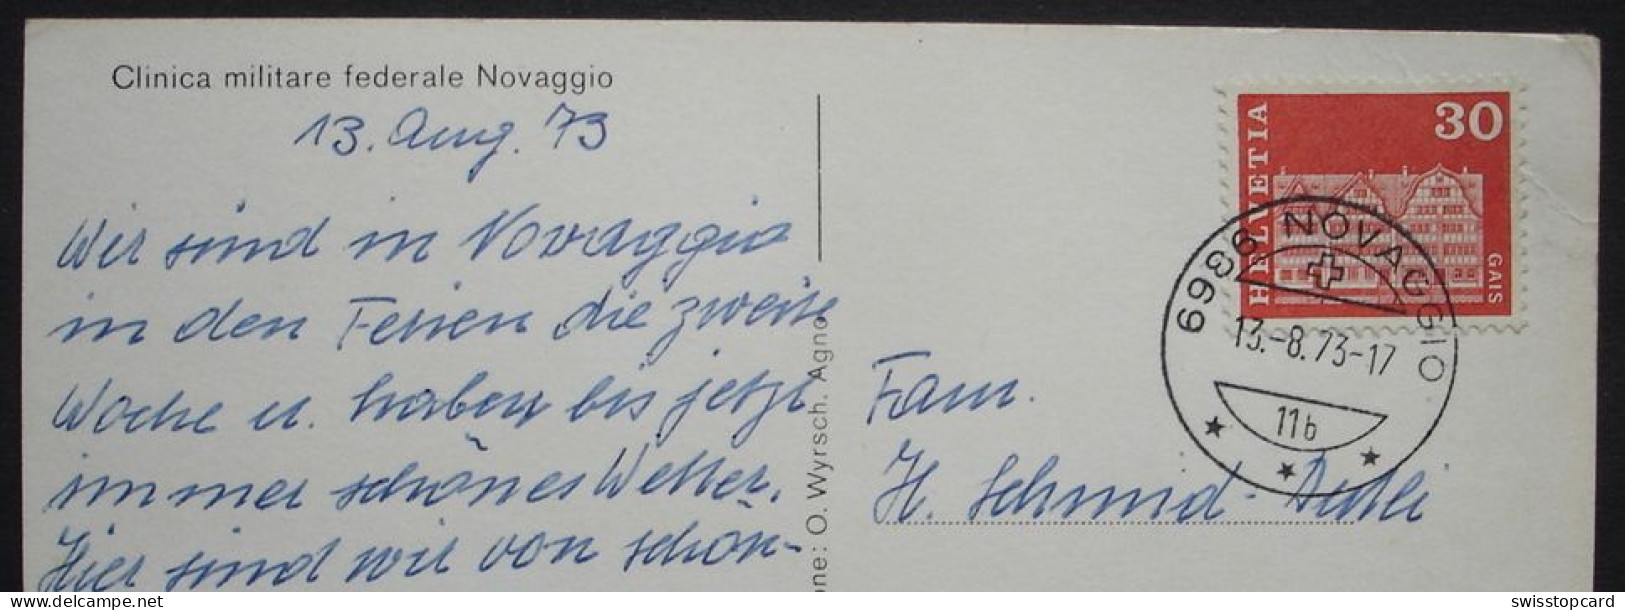 Clinica militare federale Novaggio
13. Aug. 73
Wir sind in Novaggio
in den Ferien die zweite
Woche u. haben bis jetzt
immer schönes Wetter.
Hier sind wir von schön-
one: O. Wyrsch. Agno
HELVETIA
30
GAIS
6986 NOVAGGIO
13.-8.73-17
11b
Fam.
H. Schmid-
swisstopcard